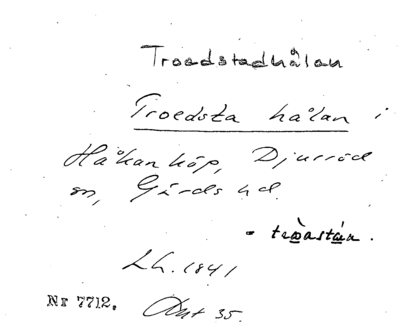 Troedstadhålan
Troedsta hålan i
Håkanköp, Djurröd
sn, Gärds hd.
- trøastan.
Lh. 1841
Nr 7712. Ant 35.